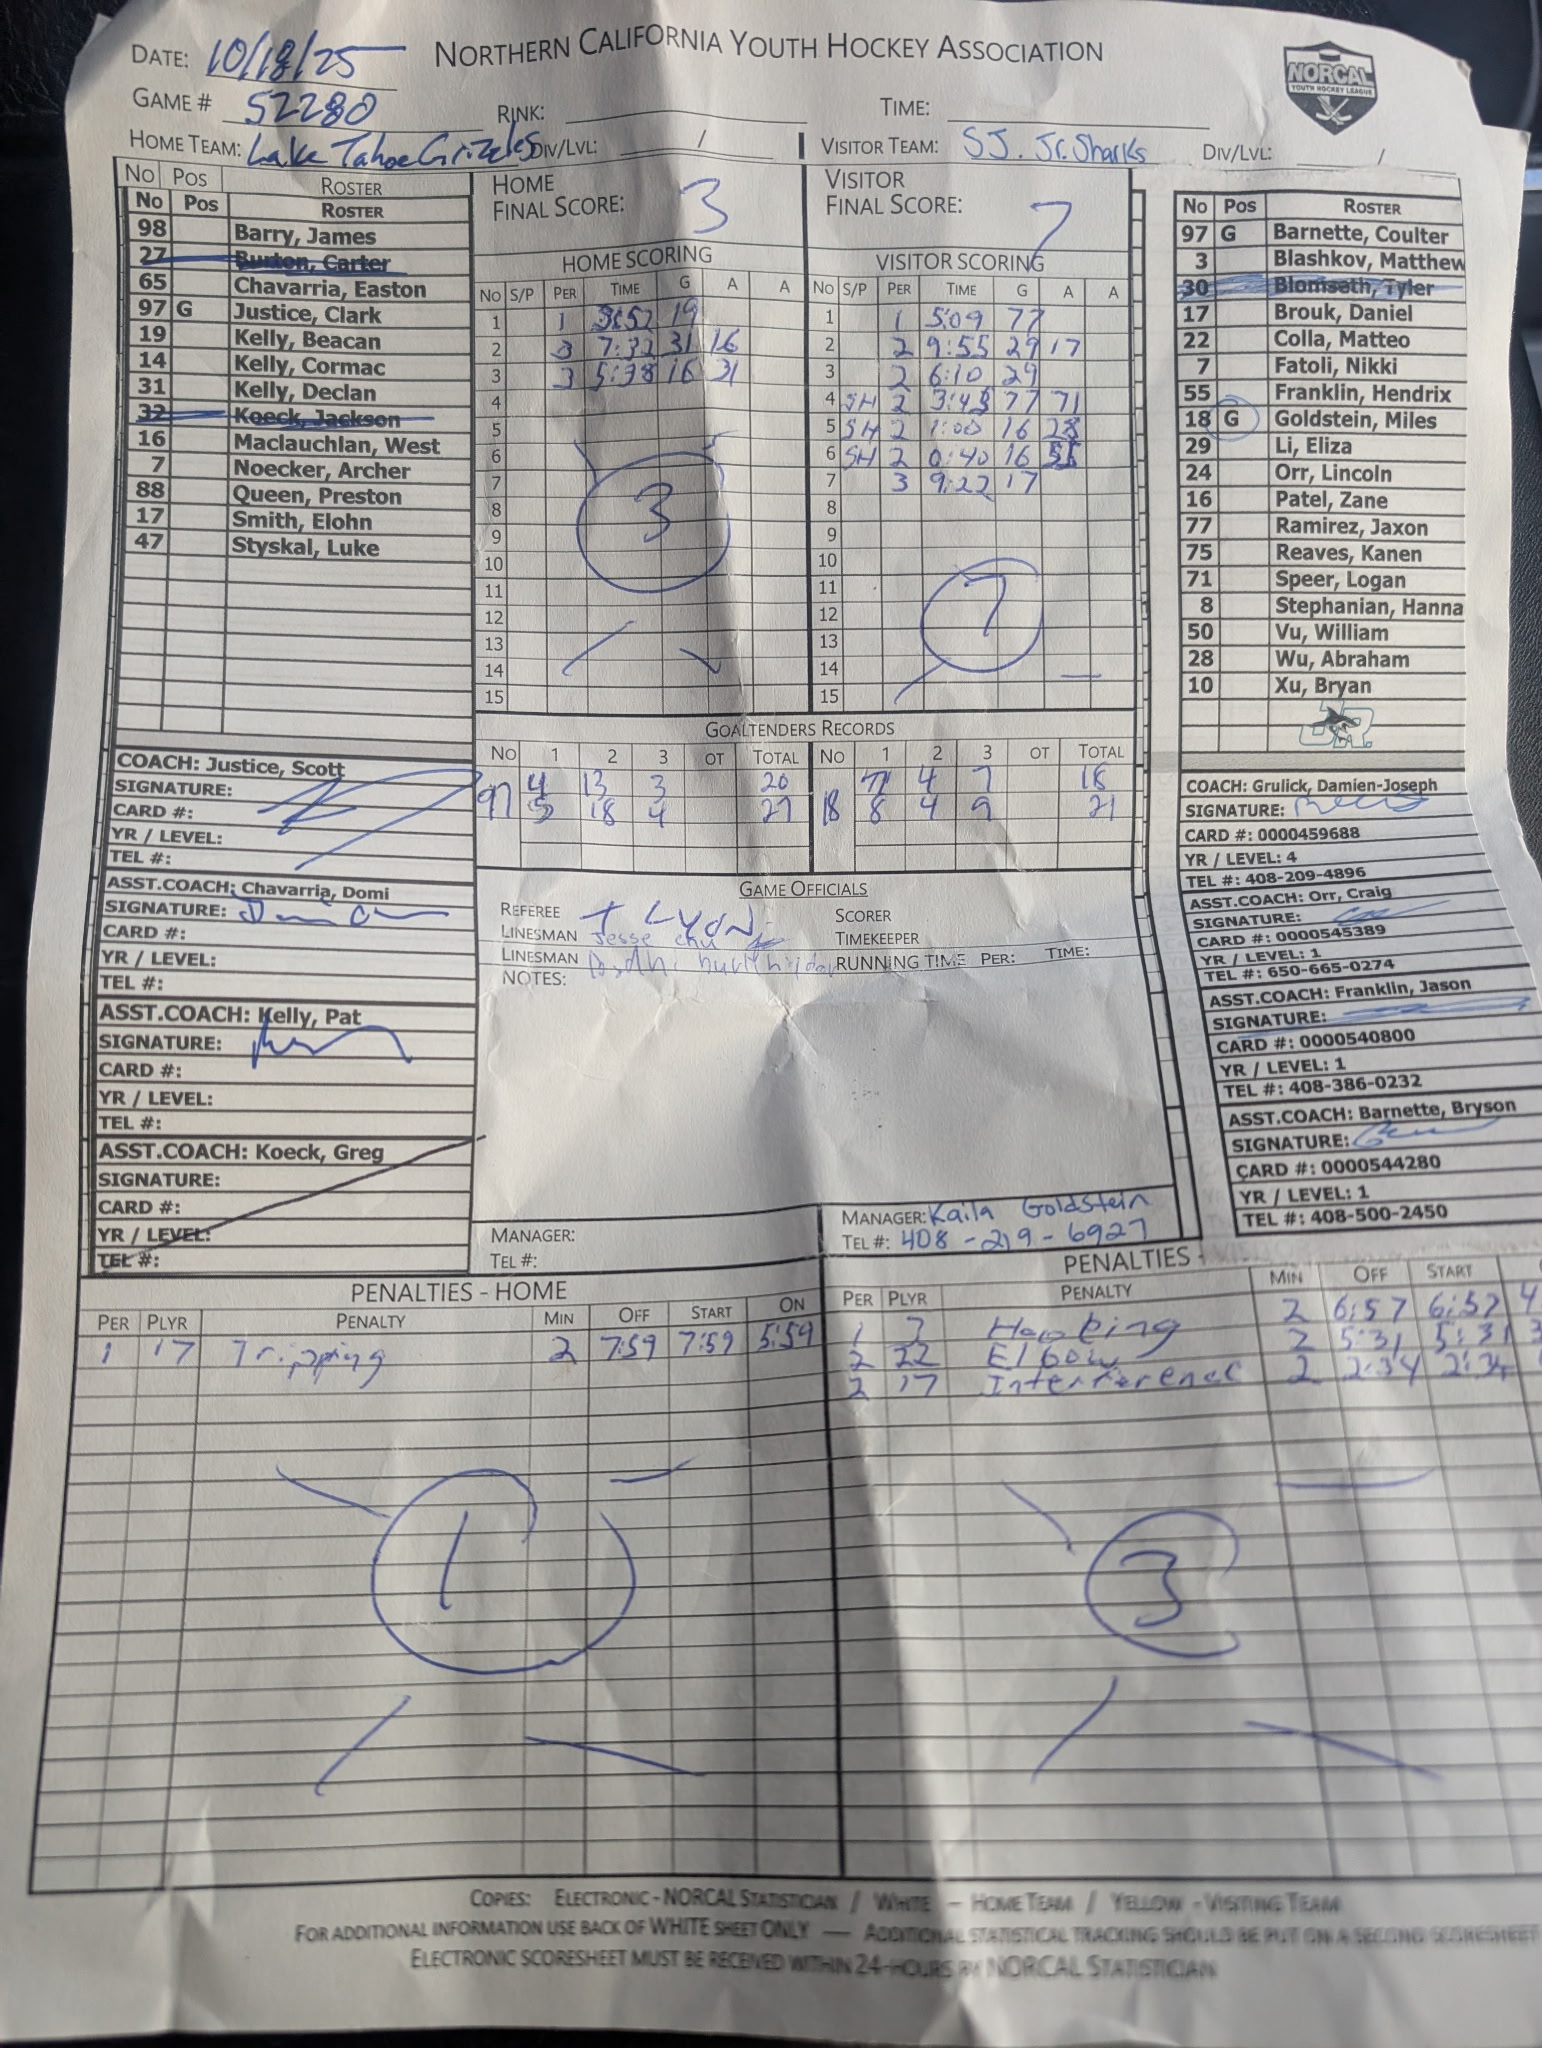 NORTHERN CALIFORNIA YOUTH HOCKEY ASSOCIATION
NORCAL
YOUTH HOCKEY LEAGUE
DATE: 10/18/25
GAME # 52280 RINK: TIME:
HOME TEAM: Lake Tahoe Grizzlies DIV/LVL: / VISITOR TEAM: SJ. Jr. Sharks DIV/LVL: /
No Pos ROSTER
No Pos ROSTER
98 Barry, James
27 Burton, Carter
65 Chavarria, Easton
97 G Justice, Clark
19 Kelly, Beacan
14 Kelly, Cormac
31 Kelly, Declan
32 Koeck, Jackson
16 Maclauchlan, West
7 Noecker, Archer
88 Queen, Preston
17 Smith, Elohn
47 Styskal, Luke
COACH: Justice, Scott
SIGNATURE:
CARD #:
YR / LEVEL:
TEL #:
ASST.COACH: Chavarria, Domi
SIGNATURE:
CARD #:
YR / LEVEL:
TEL #:
ASST.COACH: Kelly, Pat
SIGNATURE:
CARD #:
YR / LEVEL:
TEL #:
ASST.COACH: Koeck, Greg
SIGNATURE:
CARD #:
YR / LEVEL:
TEL #:
HOME
FINAL SCORE: 3
HOME SCORING
No S/P PER TIME G A A
1 1 3:57 19
2 3 7:32 31 16
3 3 5:38 16 31
4
5
6
7
8
9
10
11
12
13
14
15
3
VISITOR
FINAL SCORE: 7
VISITOR SCORING
No S/P PER TIME G A A
1 1 5:09 77
2 2 9:55 29 17
3 2 6:10 29
4 SH 2 3:43 77 71
5 SH 2 1:00 16 28
6 SH 2 0:40 16 55
7 3 9:22 17
8
9
10
11
12
13
14
15
7
GOALTENDERS RECORDS
No 1 2 3 OT TOTAL No 1 2 3 OT TOTAL
4 13 3 20 7 4 7 18
97 5 18 4 27 18 8 4 9 21
GAME OFFICIALS
REFEREE T Lyon SCORER
LINESMAN Jesse chu TIMEKEEPER
LINESMAN RUNNING TIME PER: TIME:
NOTES:
MANAGER:
TEL #:
MANAGER: Kaila Goldstein
TEL #: 408-219-6927
No Pos ROSTER
97 G Barnette, Coulter
3 Blashkov, Matthew
30 Blomseth, Tyler
17 Brouk, Daniel
22 Colla, Matteo
7 Fatoli, Nikki
55 Franklin, Hendrix
18 G Goldstein, Miles
29 Li, Eliza
24 Orr, Lincoln
16 Patel, Zane
77 Ramirez, Jaxon
75 Reaves, Kanen
71 Speer, Logan
8 Stephanian, Hanna
50 Vu, William
28 Wu, Abraham
10 Xu, Bryan
JR
COACH: Grulick, Damien-Joseph
SIGNATURE:
CARD #: 0000459688
YR / LEVEL: 4
TEL #: 408-209-4896
ASST.COACH: Orr, Craig
SIGNATURE:
CARD #: 0000545389
YR / LEVEL: 1
TEL #: 650-665-0274
ASST.COACH: Franklin, Jason
SIGNATURE:
CARD #: 0000540800
YR / LEVEL: 1
TEL #: 408-386-0232
ASST.COACH: Barnette, Bryson
SIGNATURE:
CARD #: 0000544280
YR / LEVEL: 1
TEL #: 408-500-2450
PENALTIES - HOME
PER PLYR PENALTY MIN OFF START ON
1 17 Tripping 2 7:59 7:59 5:59
1
PENALTIES -
PER PLYR PENALTY MIN OFF START
1 7 2 6:57 6:57 4
2 22 Elbow 2 5:31 5:31 3
2 17 Interference 2 2:34 2:34
3
COPIES: ELECTRONIC - NORCAL STATISTICIAN / WHITE - HOME TEAM / YELLOW - VISITING TEAM
FOR ADDITIONAL INFORMATION USE BACK OF WHITE SHEET ONLY — ADDITIONAL STATISTICAL TRACKING SHOULD BE PUT ON A SECOND SCORESHEET
ELECTRONIC SCORESHEET MUST BE RECEIVED WITHIN 24-HOURS BY NORCAL STATISTICIAN